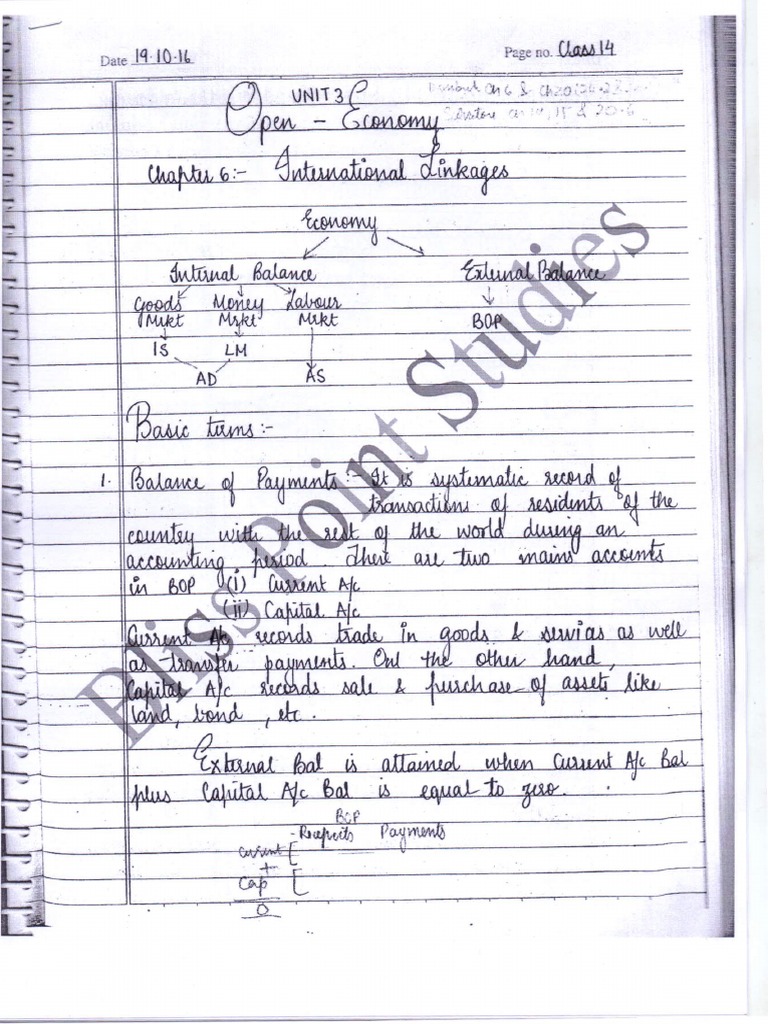 Date 19.10.16 Page no. Class 14
UNIT 3
Open - Economy
Chapter 6:- International Linkages
Economy
Internal Balance External Balance
Goods Money Labour
Mrkt Mrkt Mrkt BOP
IS LM
AD AS
Basic terms:-
1. Balance of Payments:- It is systematic record of
transactions of residents of the
country with the rest of the world during an
accounting period. There are two mains accounts
in BOP (i) Current A/c
(ii) Capital A/c
Current A/c records trade in goods & servias as well
as transfer payments. Ont the other hand,
Capital A/c records sale & purchase of assets like
land, bond, etc.
External Bal is attained when Current A/c Bal
plus Capital A/c Bal is equal to zero.
BOP
Receipts Payments
Current [
+
Cap [
0
Bliss Point Studies